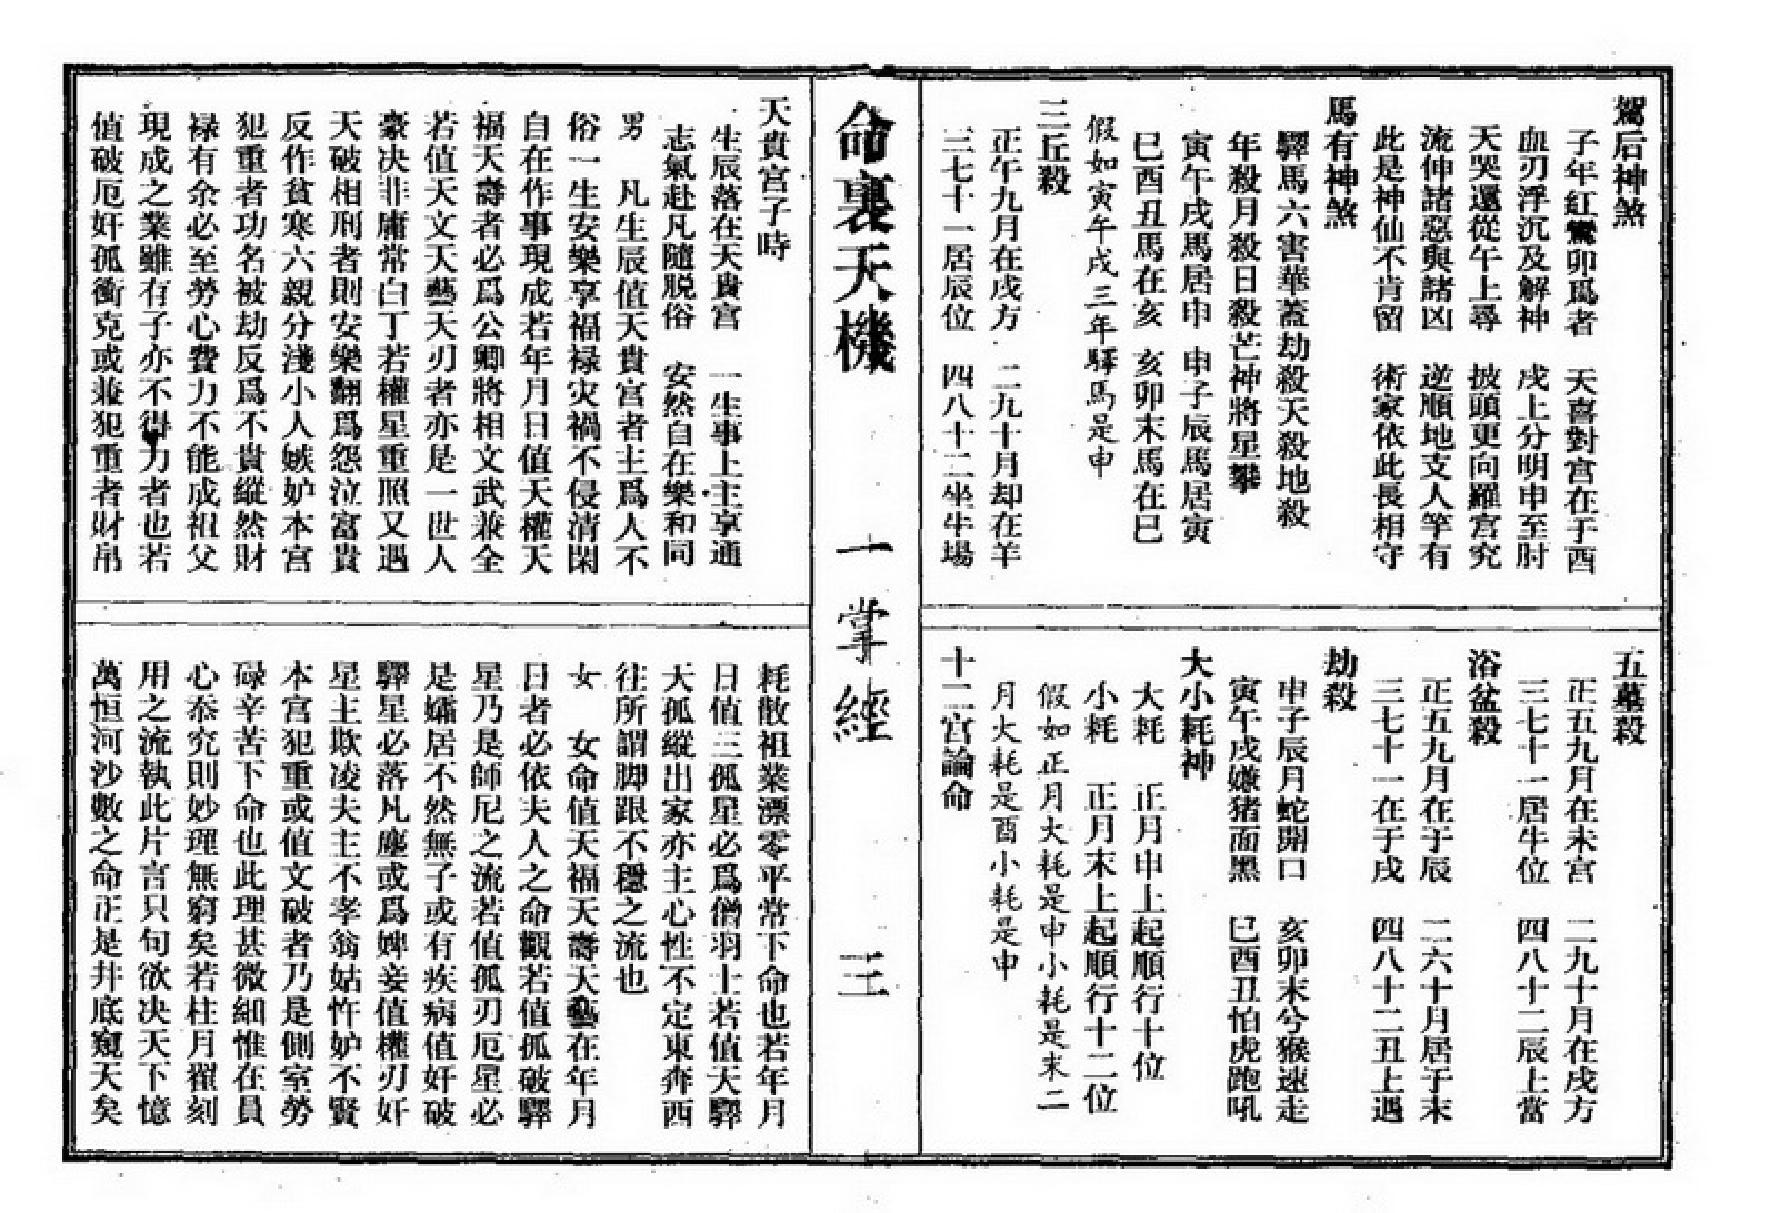 駕后神煞
子年紅鸞卯爲者　天喜對宮在于酉
血刃浮沉及解神　戌上分明申至肘
天哭還從午上尋　披頭更向羅宮究
流伸諸惡與諸凶　逆順地支人竿有
此是神仙不肯留　術家依此長相守
馬有神煞
驛馬六害華蓋劫殺天殺地殺
年殺月殺日殺芒神將星攀
寅午戌馬居申　申子辰馬居寅
巳酉丑馬在亥　亥卯未馬在巳
假如寅午戌三年驛馬是申
三丘殺
正午九月在戌方　二九十月却在羊
三七十一居辰位　四八十二坐牛場
五墓殺
正五九月在未宮　二九十月在戌方
三七十一居牛位　四八十二辰上當
浴盆殺
正五九月在于辰　二六十月居于未
三七十一在于戌　四八十二丑上遇
劫殺
申子辰月蛇開口　亥卯未兮猴速走
寅午戌嫌猪面黑　巳酉丑怕虎跑吼
大小耗神
大耗　正月申上起順行十位
小耗　正月末上起順行十二位
假如正月大耗是申小耗是末二
月大耗是酉小耗是申
十二宮論命
命裏天機　一掌經　三
天貴宮子時
生辰落在天貴宮　一生事上主享通
志氣赴凡隨脱俗　安然自在樂和同
男　凡生辰值天貴宮者主爲人不
俗一生安樂享福禄灾禍不侵清閑
自在作事現成若年月日值天權天
福天壽者必爲公卿將相文武兼全
若值天文天藝天刃者亦是一世人
豪决非庸常白丁若權星重照又遇
天破相刑者則安樂翻爲怨泣富貴
反作貧寒六親分淺小人嫉妒本宮
犯重者功名被劫反爲不貴縱然財
禄有余必至勞心費力不能成祖父
現成之業雖有子亦不得力者也若
值破厄奸孤衝克或兼犯重者財帛
耗散祖業漂零平常下命也若年月
日值三孤星必爲僧羽士若值天驛
天孤縱出家亦主心性不定東奔西
往所謂脚跟不穩之流也
女　女命值天福天壽天藝在年月
日者必依夫人之命觀若值孤破驛
星乃是師尼之流若值孤刃厄星必
是孀居不然無子或有疾病值奸破
驛星必落凡塵或爲婢妾值權刃奸
星主欺凌夫主不孝翁姑忤妒不賢
本宮犯重或值文破者乃是側室勞
碌辛苦下命也此理甚微細惟在員
心叅究則妙理無窮矣若柱月翟刻
用之流執此片言只句欲决天下憶
萬恒河沙數之命正是井底窺天矣